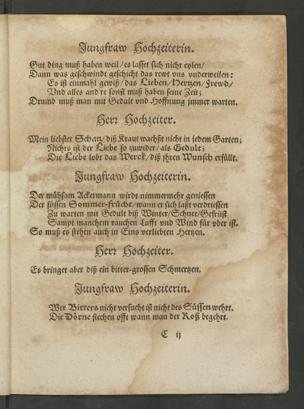 Jungfraw Hochzeiterin.
Gut ding muß haben weil/es lasset sich nicht eylen/
Dann was geschwindt geschicht das rewt uns underweilen:
Es ist einmahl gewiß/ das Lieben/ Frewd/
Vnd alles andre sonst muß haben seine Zeit;
Drumb muß man mit Gedult vnd Hoffnung jmmer warten.
Herr Hochzeiter.
Mein liebster Schatz/ diß Kraut wachßt nicht in jedem Garten;
Nichts ist der Liebe so zuwider/ als Gedult;
Die Liebe lobt das Werck/ diß jhren Wunsch erfüllt.
Jungfraw Hochzeiterin.
Der mühsam Ackermann wirdt nimmermehr geniessen
Der süssen Sommer-frücht/ wann er sich laßt verdriessen
Zu warten mit Gedult biß Winter/Schnee/Gefrüst
Sampt manchem rauchen Lufft vnd Wind für vber ist.
So muß es stehen auch in Eins verliebten Hertzen.
Herr Hochzeiter.
Es bringet aber diß ein bitter-grossen Schmertzen.
Jungfraw Hochzeiterin.
Wer Bitters nicht versucht ist nicht des Süssen wehrt.
Die Dörne stechen offt wann man der Roß begehrt.
C ij